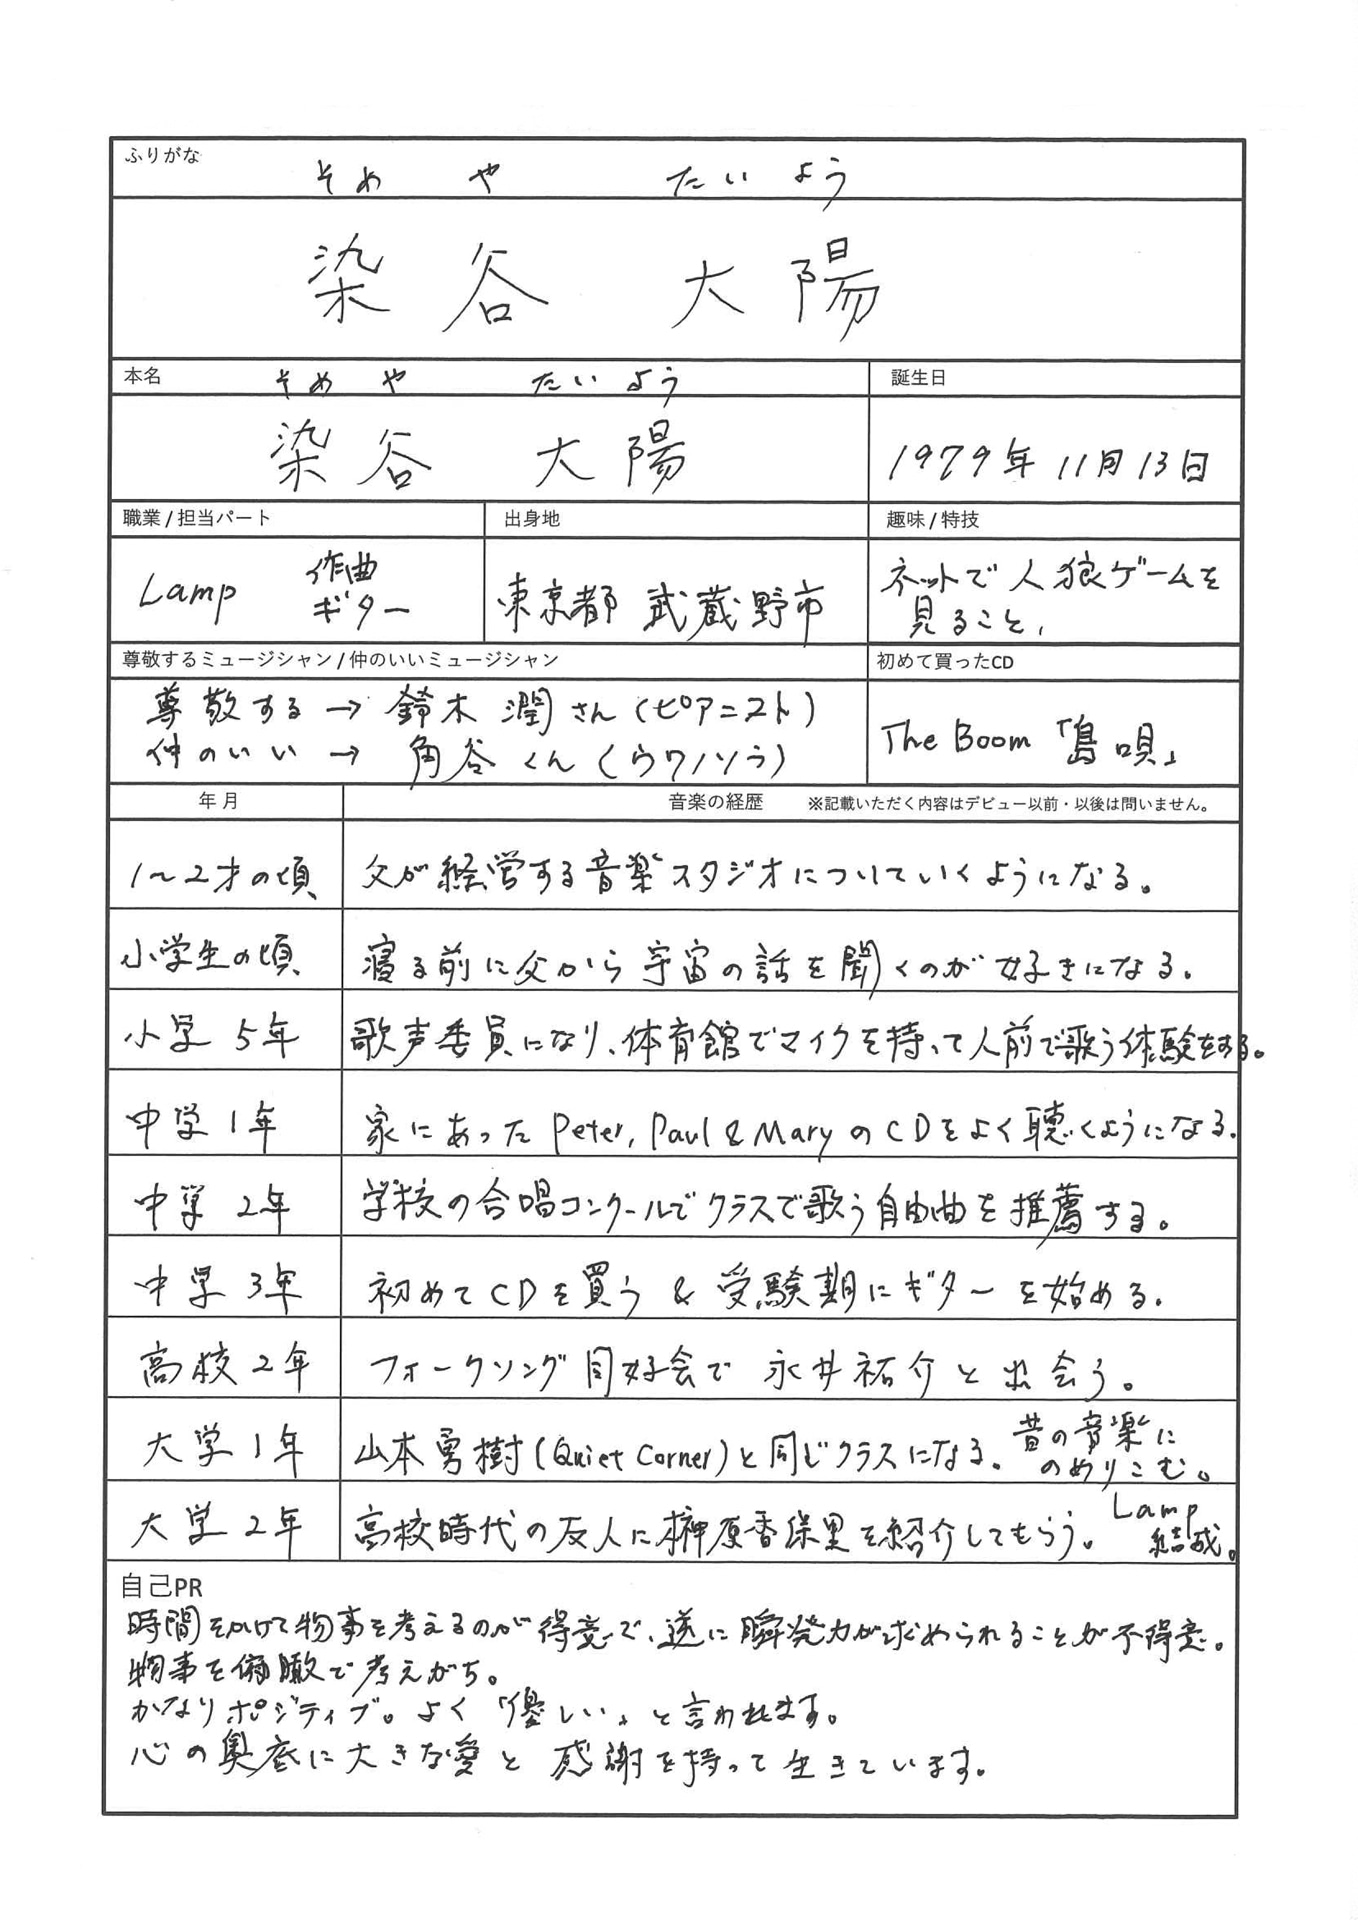 ふりがな
そめ や たいよう
染谷 大陽
本名 そめ や たいよう 誕生日
染谷 大陽 1979年11月13日
職業/担当パート 出身地 趣味/特技
Lamp 作曲 ギター 東京都 武蔵野市 ネットで人狼ゲームを
見ること、
尊敬するミュージシャン/仲のいいミュージシャン 初めて買ったCD
尊敬する→ 鈴木潤さん(ピアニスト)
仲のいい→ 角谷くん(ウワノソラ)
The Boom「島唄」
年月 音楽の経歴 ※記載いただく内容はデビュー以前・以後は問いません。
1〜2才の頃 父が経営する音楽スタジオについていくようになる。
小学生の頃 寝る前に父から宇宙の話を聞くのが好きになる。
小学5年 歌声委員になり、体育館でマイクを持って人前で歌う体験をする。
中学1年 家にあったPeter, Paul & MaryのCDをよく聴くようになる.
中学2年 学校の合唱コンクールでクラスで歌う自由曲を推薦する。
中学3年 初めてCDを買う & 受験期にギターを始める.
高校2年 フォークソング同好会で 永井祐介と出会う。
大学1年 山本勇樹(Quiet Corner)と同じクラスになる。昔の音楽に
のめりこむ。
大学2年 高校時代の友人に榊原香保里を紹介してもらう。Lamp
結成。
自己PR
時間をかけて物事を考えるのが得意で、逆に瞬発力が求められることが不得意。
物事を俯瞰で考えがち。
かなりポジティブ。よく「優しい」と言われます。
心の奥底に大きな愛と感謝を持って生きています。